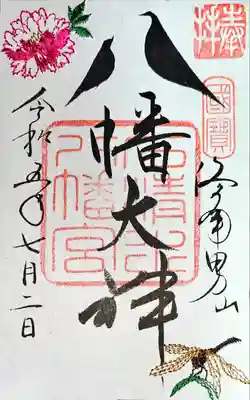 奉拝
國寶
洛南男山
八幡大神
石清水
八幡宮
令和五年七月二日